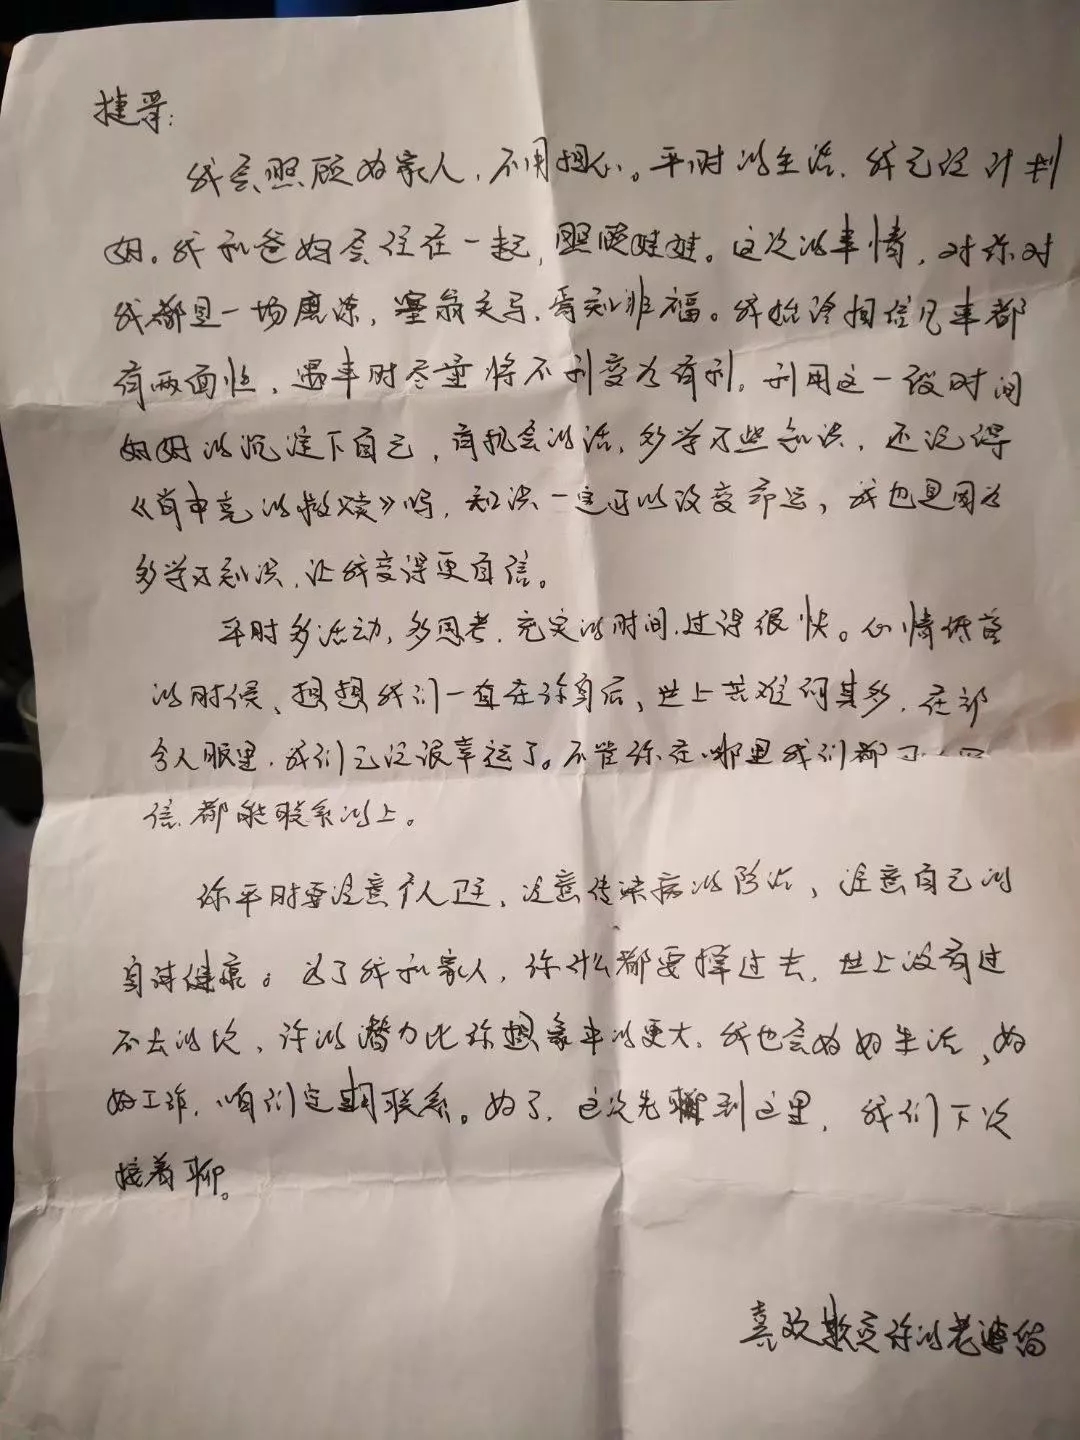 捷哥:
我会照顾好家人，不用担心。平时的生活，我已经计划
好。我和爸妈会住在一起，照顾娃娃。这次的事情，对你对
我都是一场磨练，塞翁失马，焉知非福。我始终相信凡事都
有两面性，遇事时尽量将不利变为有利。利用这一段时间
好好的沉淀下自己，有机会的话，多学习些知识，还记得
《肖申克的救赎》吗，知识一定可以改变命运，我也是因为
多学习知识，让我变得更自信。
平时多活动，多思考，充实的时间，过得很快。心情低落
的时候，想想我们一直在你身后，世上苦难何其多，在部
分人眼里，我们已经很幸运了。不管你在哪里我们都可
信都能联系的上。
你平时要注意个人卫生，注意传染病的防治，注意自己的
身体健康。为了我和家人，你什么都要撑过去，世上没有过
不去的坎，你的潜力比你想象中的更大。我也会好好生活，好
好工作，咱们定期联系。好了，这次先聊到这里，我们下次
接着聊。
喜欢欺负你的老婆